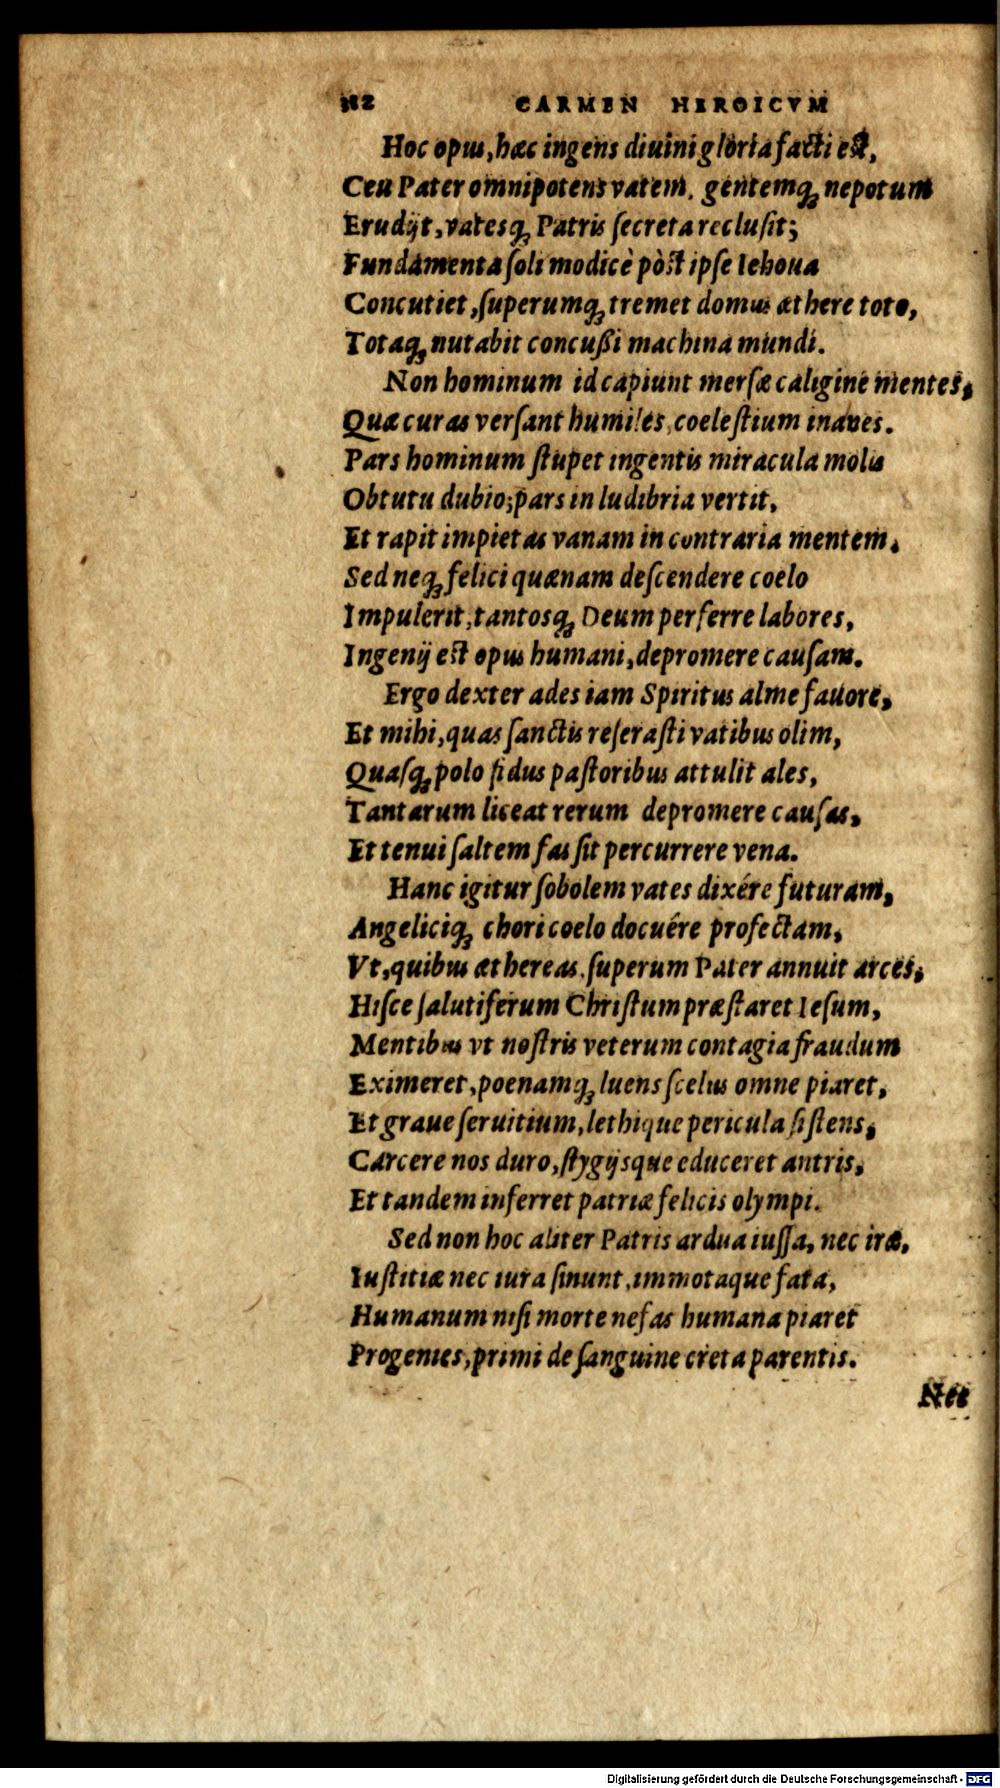 112 CARMEN HEROICVM
Hoc opus, hæc ingens diuini gloria facti est,
Ceu Pater omnipotens vatem, gentemq́; nepotum
Erudijt, vatesq́; Patris ſecreta recluſit;
Fundamenta ſoli modicè pòſt ipſe Iehoua
Concutiet, ſuperumq́; tremet domus æthere toto,
Totaq́; nutabit concuſſi machina mundi.
Non hominum id capiunt merſæ caligine mentes,
Quæ curas verſant humiles, coeleſtium inanes.
Pars hominum ſtupet ingentis miracula molis
Obtutu dubio; pars in ludibria vertit,
Et rapit impietas vanam in contraria mentem.
Sed neq́; felici quænam deſcendere coelo
Impulerit, tantosq́; Deum perferre labores,
Ingenij eſt opus humani, depromere cauſam.
Ergo dexter ades iam Spiritus alme fauore,
Et mihi, quas ſanctis reſeraſti vatibus olim,
Quaſq́; polo ſidus paſtoribus attulit ales,
Tantarum liceat rerum depromere cauſas,
Et tenui ſaltem fas ſit percurrere vena.
Hanc igitur ſobolem vates dixére futuram,
Angeliciq́; chori coelo docuére profectam,
Vt, quibus æthereas ſuperum Pater annuit arces,
Hiſce ſalutiferum Chriſtum præſtaret Ieſum,
Mentibus vt noſtris veterum contagia fraudum
Eximeret, poenamq́; luens ſcelus omne piaret,
Et graue ſeruitium, lethique pericula ſiſtens,
Carcere nos duro, ſtygijsque educeret antris,
Et tandem inferret patriæ felicis olympi.
Sed non hoc aliter Patris ardua iuſſa, nec iræ,
Iuſtitiæ nec iura ſinunt, immotaque fata,
Humanum niſi morte nefas humana piaret
Progenies, primi de ſanguine creta parentis.
Nec
Digitalisierung gefördert durch die Deutsche Forschungsgemeinschaft - DFG